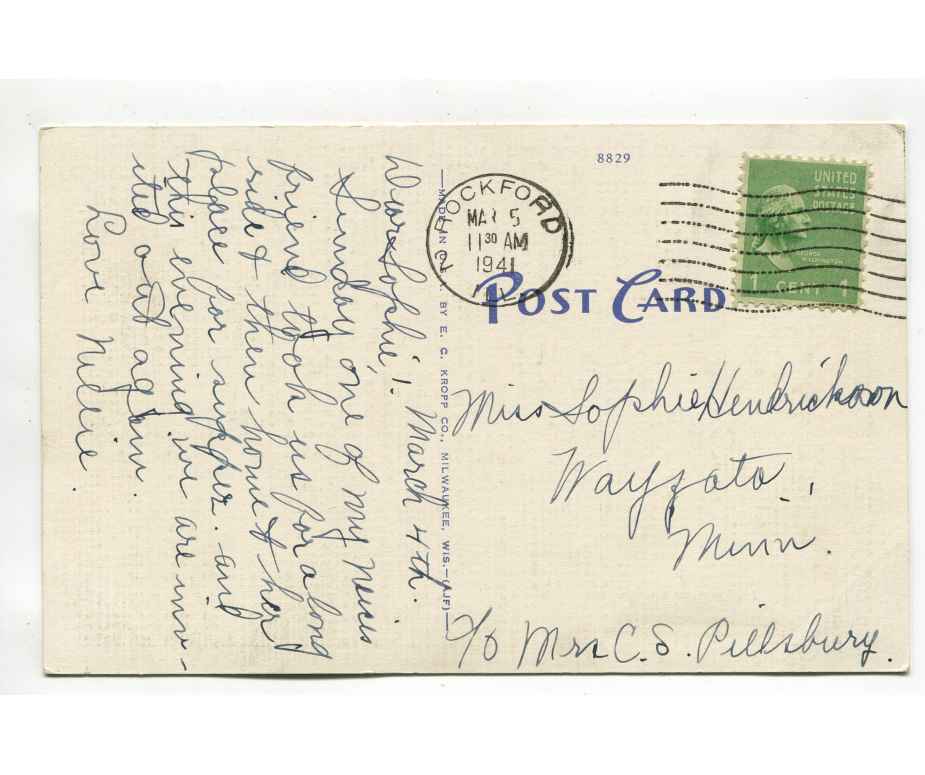 Dear Sophie, March 4th.
Sunday one of my Neices
friend took us for a long
ride & then home to her
place for supper. and
this evening we are inv-
ited out again.
Love Nellie.
MADE IN U.S.A. BY E. C. KROPP CO., MILWAUKEE, WIS.
8829
ROCKFORD
MAR 5
11 30 AM
1941
ILL.
UNITED
STATES
POSTAGE
GEORGE
WASHINGTON
1 CENT 1
POST CARD
Miss Sophie Hendrickson
Wayzata,
Minn.
c/o Mrs C. S. Pillsbury.